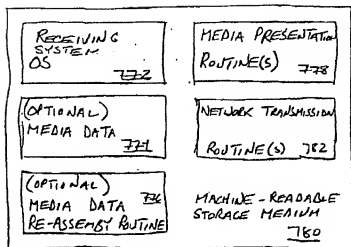 RECEIVING
SYSTEM
OS
772
(OPTIONAL)
MEDIA DATA
774
(OPTIONAL)
MEDIA DATA 776
RE-ASSEMBY ROUTINE
MEDIA PRESENTATION
ROUTINE(S) 778
NETWORK TRANSMISSION
ROUTINE(S) 782
MACHINE-READABLE
STORAGE MEDIUM
780